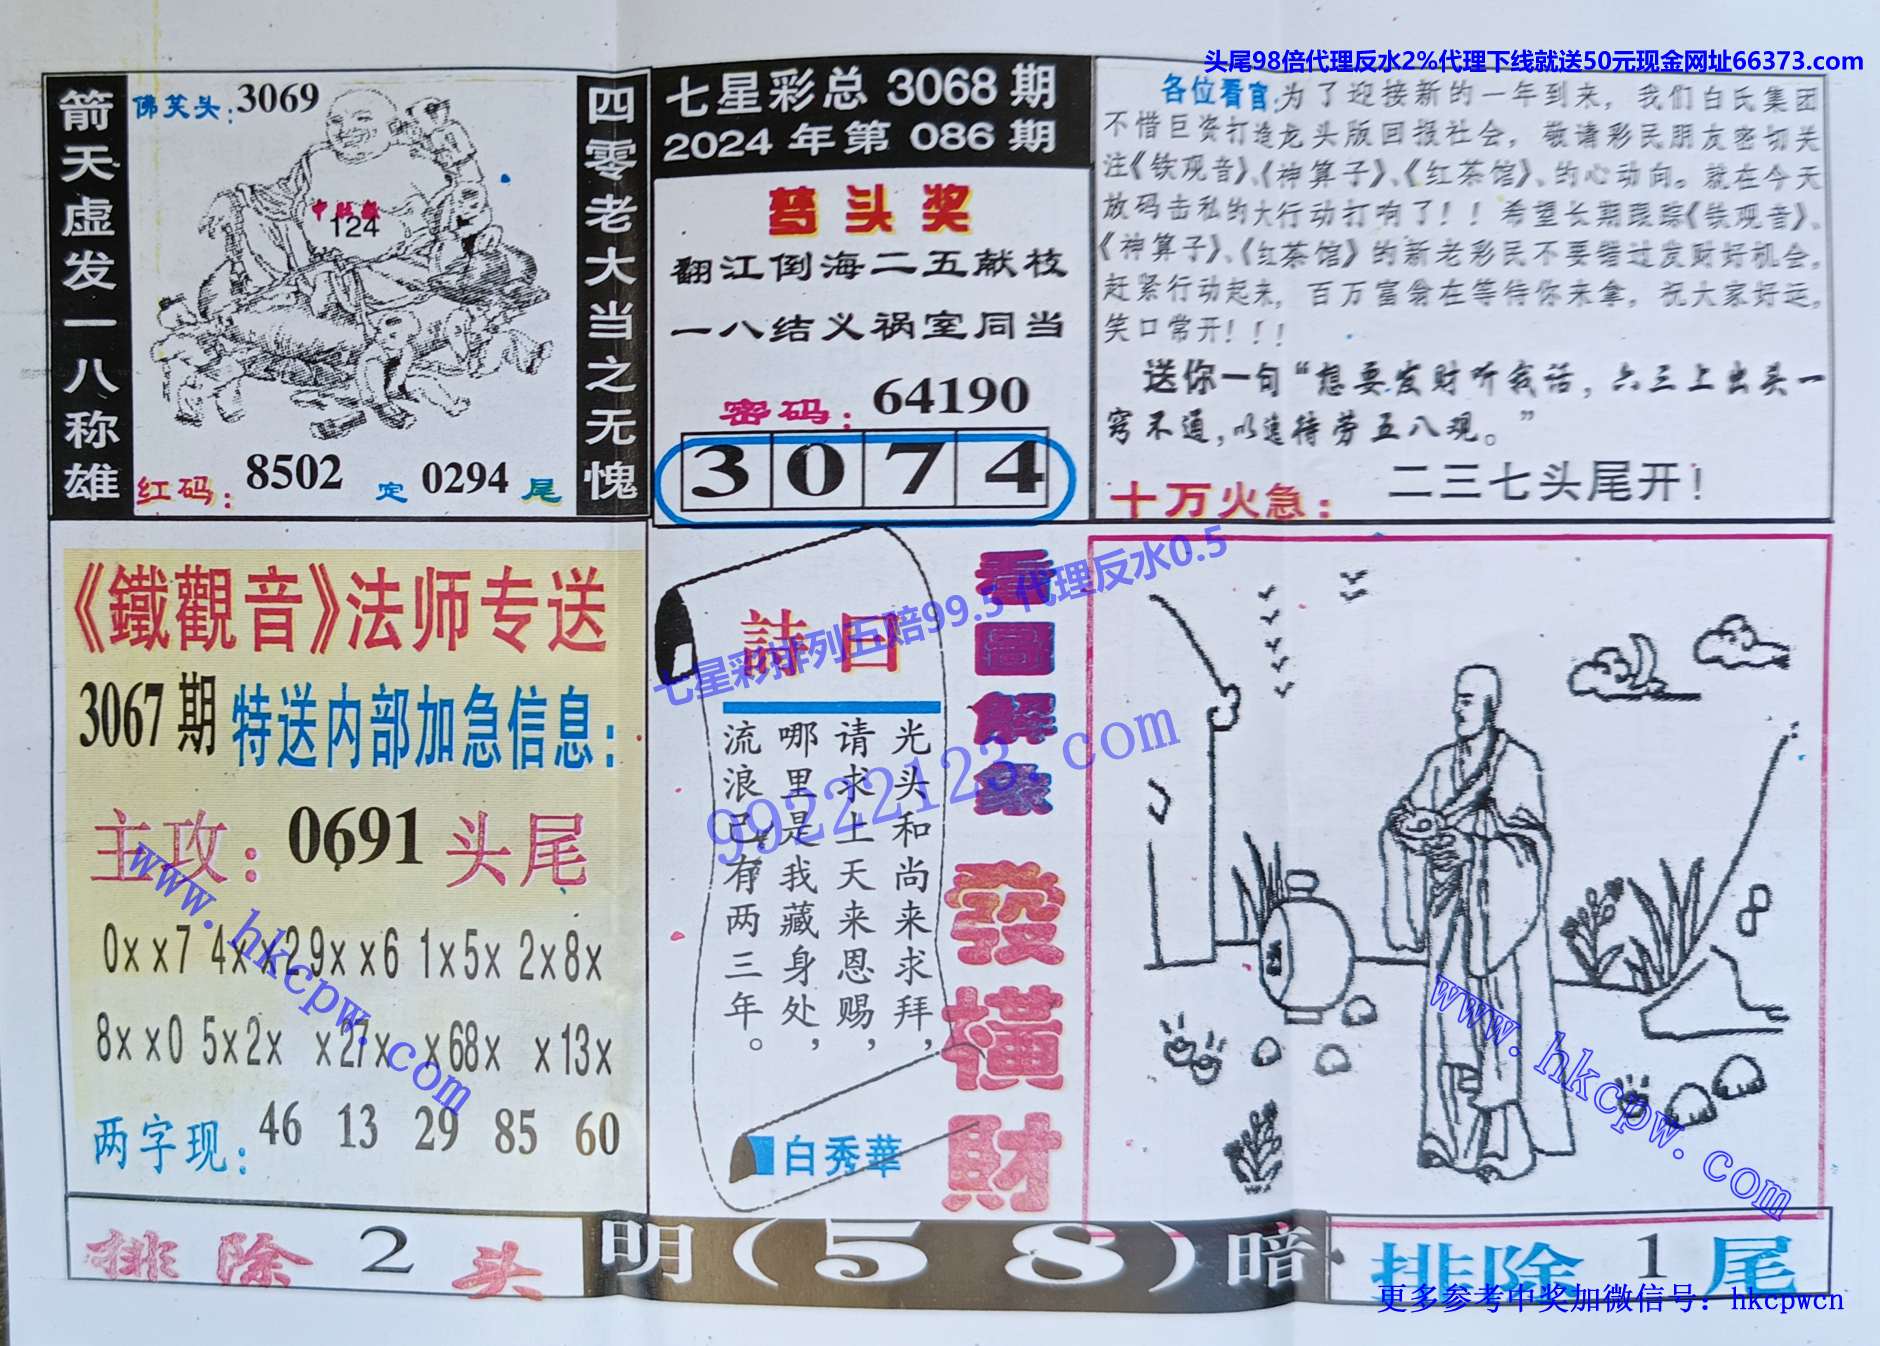 头尾98倍代理反水2%代理下线就送50元现金网址66373.com
箭天虚发一八称雄
佛笑头：3069
124
红码：8502 定 0294 尾
四零老大当之无愧
七星彩总 3068 期
2024 年第 086 期
梦头奖
翻江倒海二五献枝
一八结义祸室同当
密码：64190
3 0 7 4
各位看官：为了迎接新的一年到来，我们白氏集团
不惜巨资打造龙头版回报社会，敬请彩民朋友密切关
注《铁观音》、《神算子》、《红茶馆》、的心动向。就在今天
放码击私的大行动打响了！！希望长期跟踪《铁观音》、
《神算子》、《红茶馆》的新老彩民不要错过发财好机会。
赶紧行动起来，百万富翁在等待你来拿，祝大家好运，
笑口常开！！！
送你一句“想要发财听我话，六三上出头一
窍不通，以逸待劳五八现。”
十万火急：二三七头尾开！
《鐵觀音》法师专送
3067 期 特送内部加急信息：
主攻：0691 头尾
0xx7 4xx2 9xx6 1x5x 2x8x
8xx0 5x2x x27x x68x x13x
两字现：46 13 29 85 60
詩曰
光头和尚来求拜，
请求土天来恩赐，
哪里是我藏身处，
流浪已有两三年。
白秀華
看圖解象
發橫財
七星彩排列五赔99.5 代理反水0.5
99222123.com
www.hkcpw.com
www.hkcpw.com
排除 2 头
明（5 8）暗
排除 1 尾
更多参考中奖加微信号：hkcpwcn